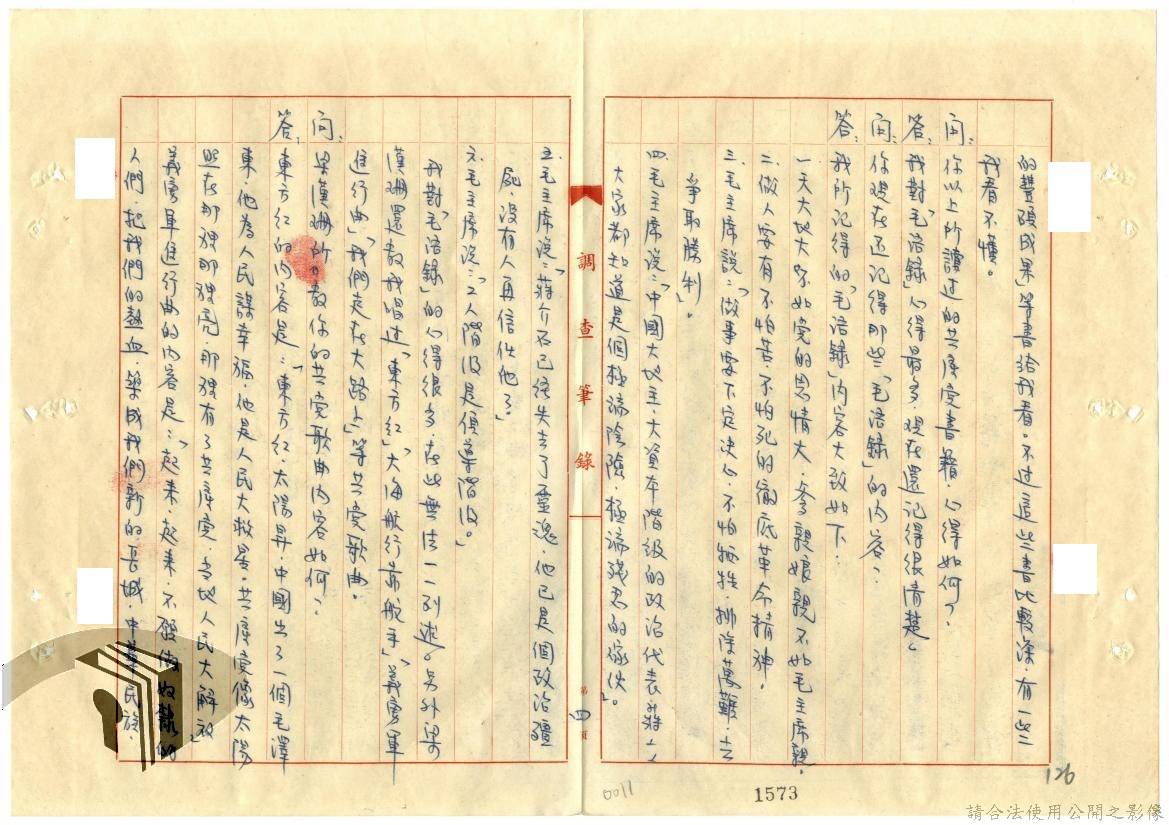 的豐碩成果」等書給我看。不過這些書比較深，有一些
我看不懂。
問：你以上所讀过的共產党書籍，心得如何？
答：我對「毛語錄」心得最多，現在還記得很清楚。
問：你現在还記得那些「毛語錄」的內容？
答：我所記得的「毛語錄」內容大致如下：
一、天大地大不如党的恩情大，爹親娘親不如毛主席親。
二、做人要有不怕苦、不怕死的徹底革命精神。
三、毛主席說：「做事要下定決心，不怕牺牲，排除萬難，去
爭取勝利」。
四、毛主席說：「中國大地主、大資本階級的政治代表蔣
大家都知道是個極端陰險，極端殘忍的傢伙。
五、毛主席說：「蔣介石已經失去了靈魂，他已是個政治殭
屍，沒有人再信仗他了」
六、毛主席說：「工人階級是領導階級。」
我對「毛語錄」的心得很多，在此無法一一列述。另外梁
漢珊還教我唱过「東方紅」「大海航行靠舵手」「義勇軍
進行曲」「我們走在大路上」等共党歌曲。
問：梁漢珊所教你的共党歌曲內容如何？
答：東方紅的內容是：「東方紅，太陽昇，中國出了一個毛澤
東，他為人民謀幸福，他是人民大救星，共產党像太陽
照在那裡那裡亮，那裡有了共產党，当地人民大解放」
義勇軍進行曲的內容是：「起來，起來，不願做奴隸的
人們，把我們的熱血，築成我們新的長城，中華民族，
調查筆錄
第四頁
0011
1573
126
請合法使用公開之影像